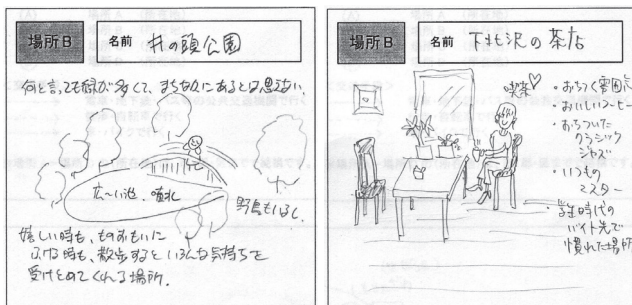 場所B 名前 井の頭公園
何と言っても緑が多くて、まちなかにあるとは思えない。
広〜い池、噴水
野鳥もいるし
嬉しい時も、ものおもいに
ふける時も、散歩すると いろんな気持ちを
受けとめてくれる場所。
場所B 名前 下北沢の茶店
喫茶♡
・おちつく雰囲気
・おいしいコーヒー
・おちついた
クラシック
ジャズ
・いつもの
マスター
・学生時代の
バイト先で
慣れた場所